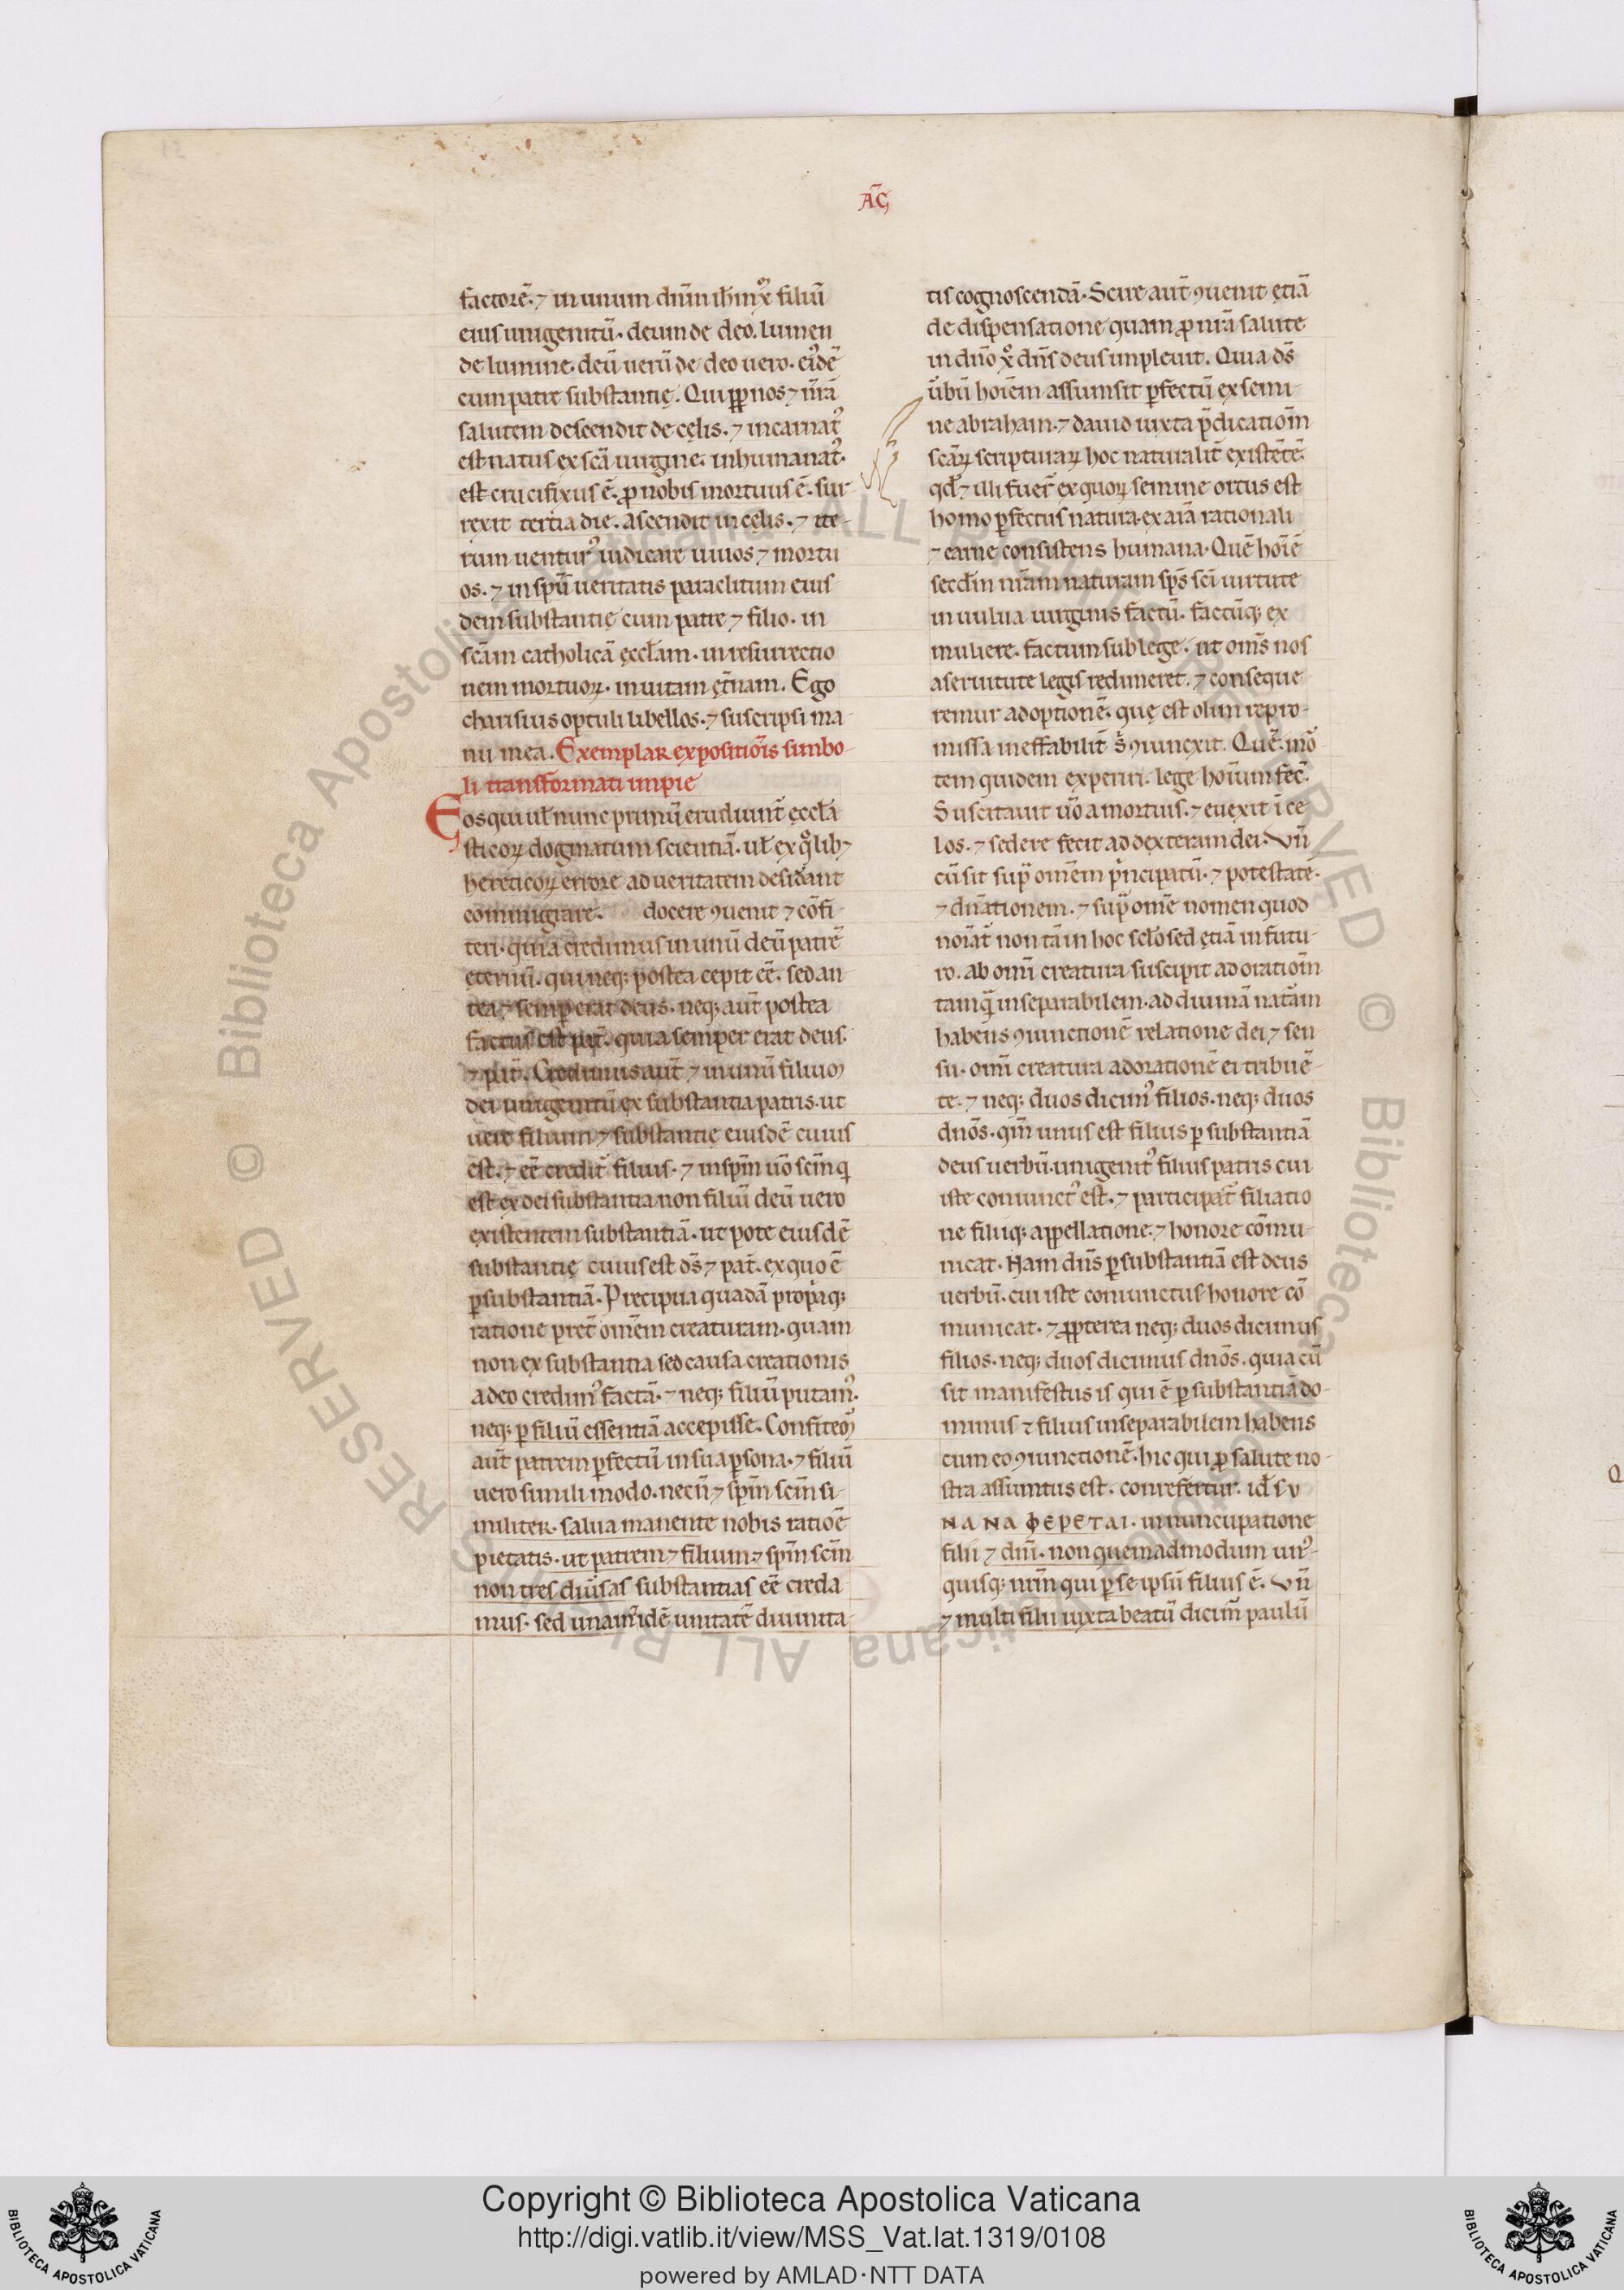 AC̄
factorē· ⁊ in unum dn̄m ih̄m xp̄m filiū
eius unigenitū· deum de deo. lumen
de lumine· deū uerū de deo uero· eiꝰdē
cum patre substantię. Qui ꝓpꝑ nos ⁊ nr̄ā
salutem descendit de cęlis. ⁊ incarnatꝰ
est· natus ex scā uirgine· inhumanatꝰ·
est crucifixus ē· ꝓ nobis mortuus ē· sur
rexit tertia die. ascendit in cęlis. ⁊ ite-
rum uenturꝰ iudicare uiuos ⁊ mortu
os. ⁊ in spū ueritatis paraclitum eius
dem substantię cum patre ⁊ filio· in
scām catholicā ęccl̄am· in resurrectio
nem mortuoꝝ· in uitam ęt̄nam. Ego
charisius optuli libellos· ⁊ suscripsi ma
nu mea. Exemplar expositiōis simbo-
li transformati impie
Eos qui ul̄ nunc primū erudiunt̄ ęccl̄ia
sticoꝝ dogmatum scientiā· ul̄ ex qͦlib⁊
hereticoꝝ errore ad ueritatem desiđant
commigrare. docere ꝯuenit ⁊ cōfi-
teri· quia credimus in unū deū patrē
eternū· qui neq; postea cepit eē· sed an
tea ⁊ semꝑ erat deus· neq; aut̄ postea
factus est pat̄· quia semper erat deus·
⁊ pat̄. Credimus aut̄ ⁊ in unū filium
dei unigenitū ex substantia patris· ut
uere filium ⁊ substantię eiusdē cuius
est· ⁊ eē credit̄ filius· ⁊ in spm̄ uō scm̄ q
est ex dei substantia non filiū deū uero
existentem substantiā· ut pote eiusdē
substantię cuius est ds̄ ⁊ pat̄· ex quo ē
ꝑ substantiā· Precipua quadā propaq;
ratione pret̄ omēm creaturam· quam
non ex substantia sed causa creationis
a deo credimꝰ factā· ⁊ neq; filiū putamꝰ·
neq; ꝑ filiū essentiā accepisse. Confitemꝰ
aut̄ patrem ꝑfectū in sua ꝑsona· ⁊ filiū
uero simili modo· necn̄ ⁊ spm̄ scm̄ si-
militer· salua manente nobis ratiōe
pietatis· ut patrem ⁊ filium ⁊ spm̄ scm̄
non tres diūsas substantias eē creda
mus· sed unam ⁊ idē unitatē diuinita-
tis cognoscendā· Scire aut̄ ꝯuenit ętiā
de dispensatione quam ꝓ nr̄a salute
in dn̄o xp̄o dn̄s deus impleuit. Quia ds̄
ūbū hoīem assumsit ꝑfectū ex semi-
ne abraham· ⁊ dauid iuxta p̄dicatiōm
scāꝝ scripturaꝝ hoc naturalit̄ existētē·
qd̄ ⁊ illi fuer̄ ex quoꝝ semine ortus est
homo ꝑfectus natura· ex aīa rationali
⁊ carne consistens humana· Quē hoīē
secđm nr̄am naturam sps̄ sc̄i uirtute
in uulua uirginis factū· factūq; ex
muliere· factum sub lege· ut oms̄ nos
a seruitute legis redimeret. ⁊ conseque
remur adoptionē· quę est olim repro-
missa ineffabilit̄ s̄ ꝯiunxit. Quē· mō
tem quidem experiri· lege hoīum fec̄·
Suscitauit uō a mortuis· ⁊ euexit ī ce
los. ⁊ sedere fecit ad dexteram dei· Vn̄
cū sit suꝑ omēm p̄ncipatū· ⁊ potestatē·
⁊ dn̄ationem· ⁊ suꝑ omē nomen quod
noīat̄ non tā in hoc scl̄o sed ętiā in futu-
ro. ab omī creatura suscipit adoratiōm
tamq̄ inseparabilem· ad diuinā nat̄am
habens ꝯiunctionē relatione dei ⁊ sen
su· omī creatura adorationē ei tribuē-
te· ⁊ neq; duos dicimꝰ filios· neq; duos
dnōs· qm̄ unus est filius ꝑ substantiā
deus uerbū· unigenitꝰ filius patris cui
iste coniunctꝰ est· ⁊ participat̄ filiatio
ne filiiq; appellatione ⁊ honore cōmu-
nicat· Nam dn̄s ꝑ substantiā est deus
uerbū· cui iste coniunctus honore cō
municat· ⁊ ꝓpterea neq; duos dicimus
filios· neq; duos dicimus dnōs· quia cū
sit manifestus is qui ē ꝑ substantiā do-
minus ⁊ filius inseparabilem habens
cum eo ꝯiunctionē· hic qui ꝓ salute no-
stra assumtus est· conrefertur· id̄ sv
NANAΦEPETAI· in nuncupatione
filii ⁊ dn̄i· non quemadmodum unꝰ-
quisq; nrm̄ qui ꝑ se ipsū filius ē. Vn̄
⁊ multi filii iuxta beatū dicim̄ paulū
Copyright © Biblioteca Apostolica Vaticana
http://digi.vatlib.it/view/MSS_Vat.lat.1319/0108
powered by AMLAD·NTT DATA